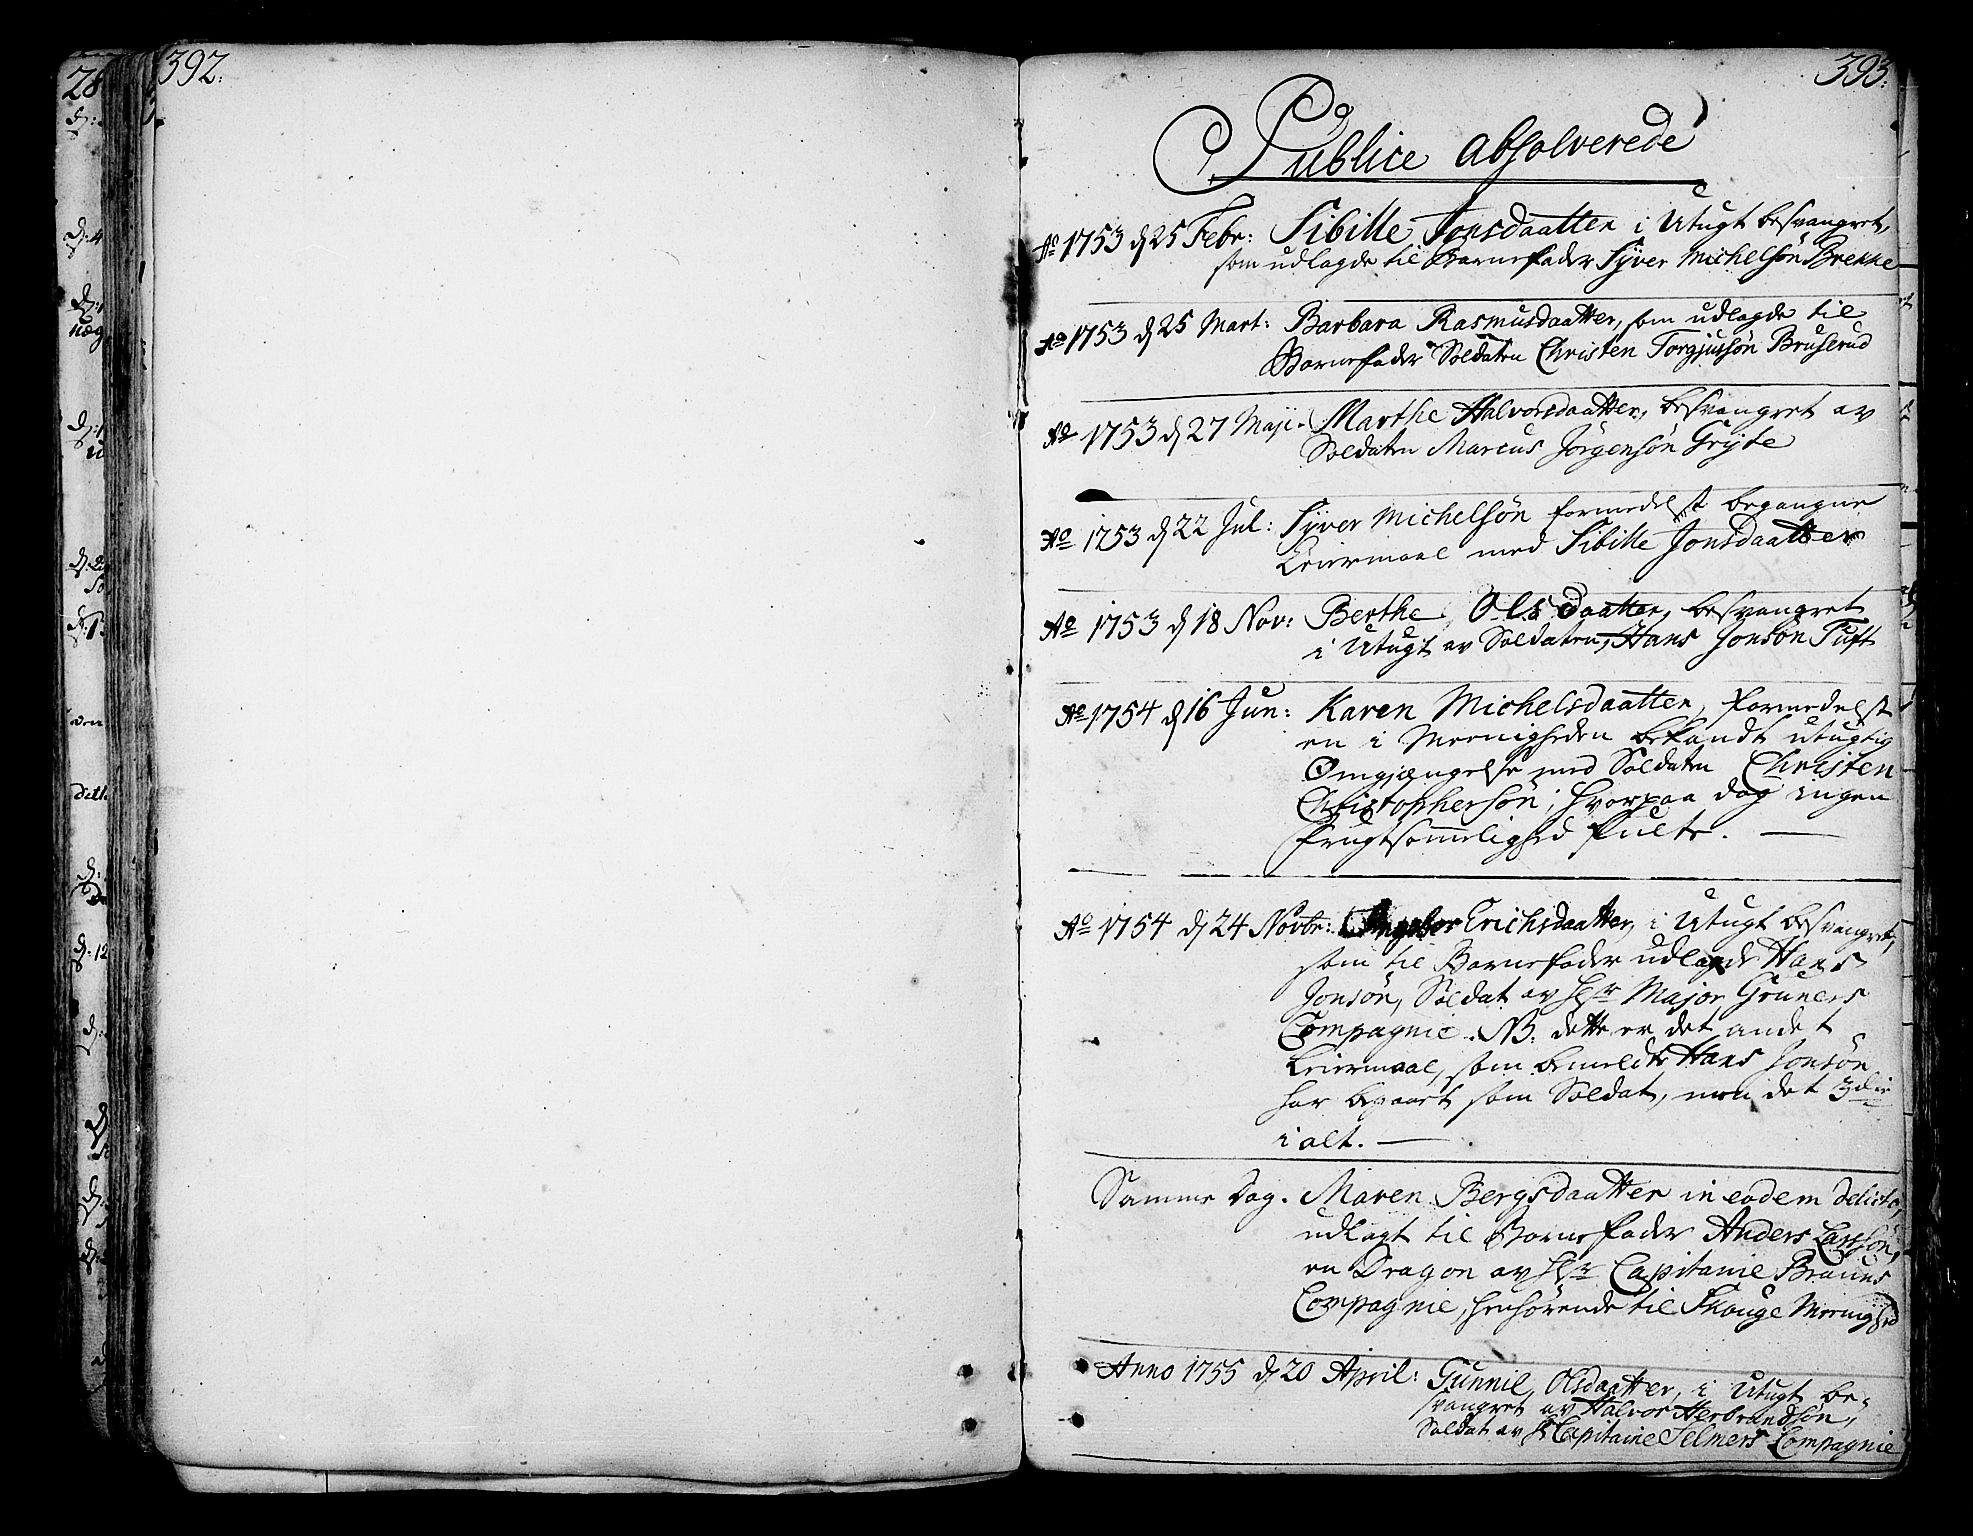 392.
393.
Publice absolverede
Ao 1753 d 25 Febr: Sibille Jonsdaatter i Utugt besvangret,
som udlagde til Barnefader Syver Michelsön Brekke
Ao 1753 d 25 Mart: Barbara Rasmusdaatter, som udlagde til
Barnefader Soldaten Christen Torgjussön Bruserud
Ao 1753 d 27 Maji. Marthe Halvorsdaatter, besvangret av
Soldaten Marcus Jörgensön Gryte
Ao 1753 d 22 Jul: Syver Michelsön formedelst begangne
Leiermaal med Sibille Jonsdaatter
Ao 1753 d 18 Nov: Berthe Olsdaatter, besvangret
i Utugt av Soldaten, Hans Jonsön Tuft
Ao 1754 d 16 Jun: Karen Michelsdaatter, formedelst
en i Meenigheden bekandt utugtig
Omgjængelse med Soldaten Christen
Christophersön; hvorpaa dog ingen
frugtsommelighed fulte.
Ao 1754 d 24 Novbr: Ingebor Erichsdaatter, i Utugt besvangret,
som til Barnefader udlagde Hans
Jonsön, Soldat av Hr Major Gruners
Compagnie. NB. dette er det andet
Leiermaal, som bemeldte Hans Jonsön
har begaaet som Soldat, men det 3die
i alt.
Samme Dag. Maren Bergsdaatter in eodem delicto,
udlagt til Barnefader Anders Larssön,
en Dragon av Hr Capitaine Bruuns
Compagnie, henhörende til Skouge Meenighed
Anno 1755 d 20 April: Gunnil Olsdaatter, i Utugt be-
svangret av Halvor Herbrandsön,
Soldat av Hr Capitaine Selmers Compagnie